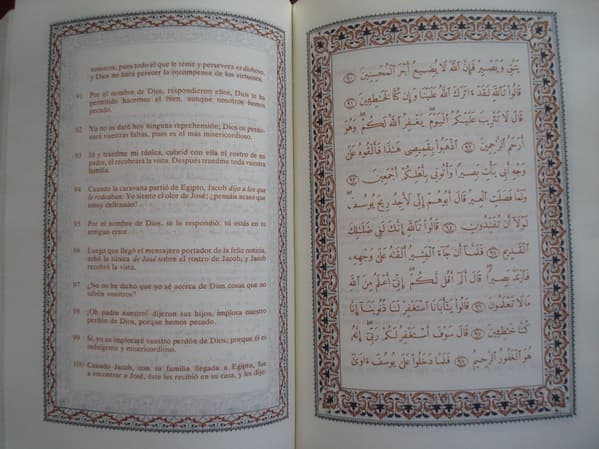 nosotros; pues todo el que le teme y persevera es dichoso,
y Dios no hará perecer la recompensa de los virtuosos.
91 Por el nombre de Dios, respondieron ellos, Dios te ha
permitido hacernos el bien, aunque nosotros hemos
pecado.
92 Yo no os daré hoy ninguna reprehensión; Dios os perdo-
nará vuestras faltas, pues es el más misericordioso.
93 Id y traedme mi túnica, cubrid con ella el rostro de mi
padre, él recobrará la vista. Después traedme toda vuestra
familia.
94 Cuando la caravana partió de Egipto, Jacob dijo a los que
le rodeaban: Yo siento el olor de José; ¿pensáis acaso que
estoy delirando?
95 Por el nombre de Dios, se le respondió: tú estás en tu
antiguo error.
96 Luego que llegó el mensajero portador de la feliz noticia,
echó la túnica de José sobre el rostro de Jacob, y Jacob
recobró la vista.
97 ¿No os he dicho que yo sé acerca de Dios cosas que no
sabéis vosotros?
98 ¡Oh padre nuestro! dijeron sus hijos, implora nuestro
perdón de Dios, porque hemos pecado.
99 Sí, yo os imploraré vuestro perdón de Dios; porque él es
indulgente y misericordioso.
100 Cuando Jacob, con su familia, llegada a Egipto, fue
a encontrar a José, éste les recibió en su casa, y les dijo:
يَتَّقِ وَيَصْبِرْ فَإِنَّ ٱللَّهَ لَا يُضِيعُ أَجْرَ ٱلْمُحْسِنِينَ ٩٠
قَالُوا۟ تَٱللَّهِ لَقَدْ ءَاثَرَكَ ٱللَّهُ عَلَيْنَا وَإِن كُنَّا لَخَٰطِـِٔينَ ٩١
قَالَ لَا تَثْرِيبَ عَلَيْكُمُ ٱلْيَوْمَ يَغْفِرُ ٱللَّهُ لَكُمْ وَهُوَ
أَرْحَمُ ٱلرَّٰحِمِينَ ٩٢ ٱذْهَبُوا۟ بِقَمِيصِى هَٰذَا فَأَلْقُوهُ عَلَىٰ
وَجْهِ أَبِى يَأْتِ بَصِيرًا وَأْتُونِى بِأَهْلِكُمْ أَجْمَعِينَ ٩٣
وَلَمَّا فَصَلَتِ ٱلْعِيرُ قَالَ أَبُوهُمْ إِنِّى لَأَجِدُ رِيحَ يُوسُفَ
لَوْلَآ أَن تُفَنِّدُونِ ٩٤ قَالُوا۟ تَٱللَّهِ إِنَّكَ لَفِى ضَلَٰلِكَ
ٱلْقَدِيمِ ٩٥ فَلَمَّآ أَن جَآءَ ٱلْبَشِيرُ أَلْقَىٰهُ عَلَىٰ وَجْهِهِۦ
فَٱرْتَدَّ بَصِيرًا قَالَ أَلَمْ أَقُل لَّكُمْ إِنِّىٓ أَعْلَمُ مِنَ ٱللَّهِ
مَا لَا تَعْلَمُونَ ٩٦ قَالُوا۟ يَٰٓأَبَانَا ٱسْتَغْفِرْ لَنَا ذُنُوبَنَآ إِنَّا
كُنَّا خَٰطِـِٔينَ ٩٧ قَالَ سَوْفَ أَسْتَغْفِرُ لَكُمْ رَبِّىٓ إِنَّهُۥ
هُوَ ٱلْغَفُورُ ٱلرَّحِيمُ ٩٨ فَلَمَّا دَخَلُوا۟ عَلَىٰ يُوسُفَ ءَاوَىٰٓ